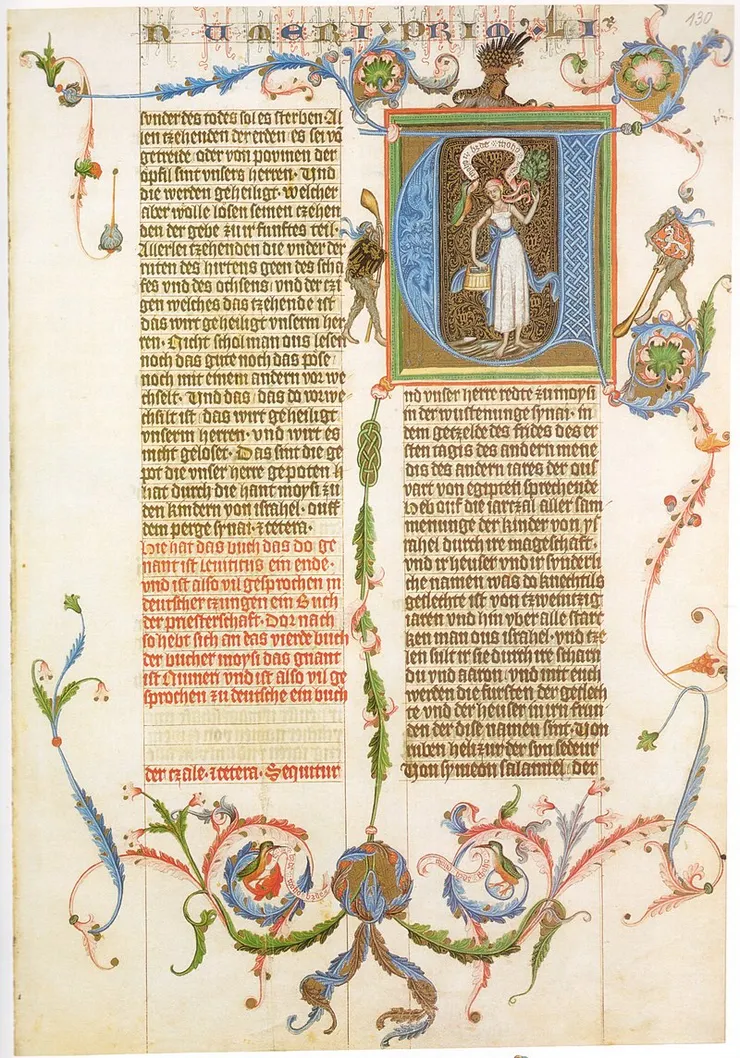 NUMERI·PRIM·LI
130
sunder des todes sol es sterben Al
len czehenden der erden es sei võ
getreide oder von povmen der
öpfil sint vnsers herren· Vnd
die werden geheiligt· welcher
aber wolle losen seinen czehen
den der gebe zu in funftes teil·
Allerlei tzehenden die vnder der
ruten des hirtens geen des scha
fes vnd des ochsens· vnd der czi
gen welches das tzehende ist
das wirt geheiligt vnserm her
ren· Nicht schol man ous lesen
noch das gute noch das pöse
noch mit einem andern vor we
chselt· Vnd das· das do vorwe
chsilt ist· das wirt geheiligt
vnserm herren· vnd wirt es
nicht geloset· Das sint die ge
pot die vnser herre gepoten
hat durch die hant moysi zu
den kindern von israhel· ouff
dem perge synai· ⁊cetera·
Hie hat das buch das do ge
nant ist leuiticus ein ende·
vnd ist also vil gesprochen in
deutscher tzungen ein Buch
der priesterschaft· Dor nach
so hebt sich an das vierde buch
der bucher moysi das gnant
ist Numeri vnd ist also vil ge
sprochen zu deutsche ein buch
der czale· ⁊cetera· Sequitur
nd vnser herre redte zu moysi
in der wustenunge synai· in
dem getzelde des frides des er
sten tagis des andern mene
dis des andern iares der ous
vart von egipten sprechende
Heb ouf die iarczal aller sam
menunge der kinder von ys
rahel durch ire mageschaft·
vnd ir heuser vnd ir sunderli
che namen was do knechtlis
geslechte ist von tzweintzig
iaren vnd hin vber alle star
ken man ous israhel· vnd tze
len sült ir sie durch ire scharn
du vnd aaron· vnd mit euch
werden die fursten der geslech
te vnd der heuser in irn frun
den der dise namen sint· Von
ruben helizur der son sedeur
Von symeon salamiel der